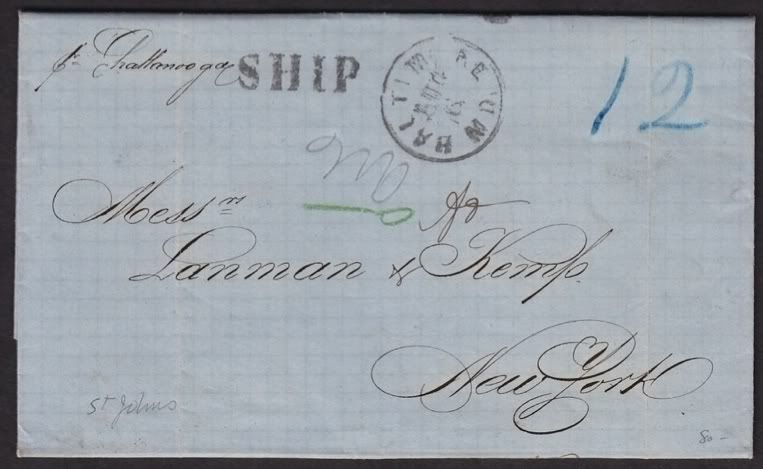 pr Chattanooga
SHIP
BALTIMORE MD
12
Messrs
Lanman & Kemp
New York
St Johns
80 -